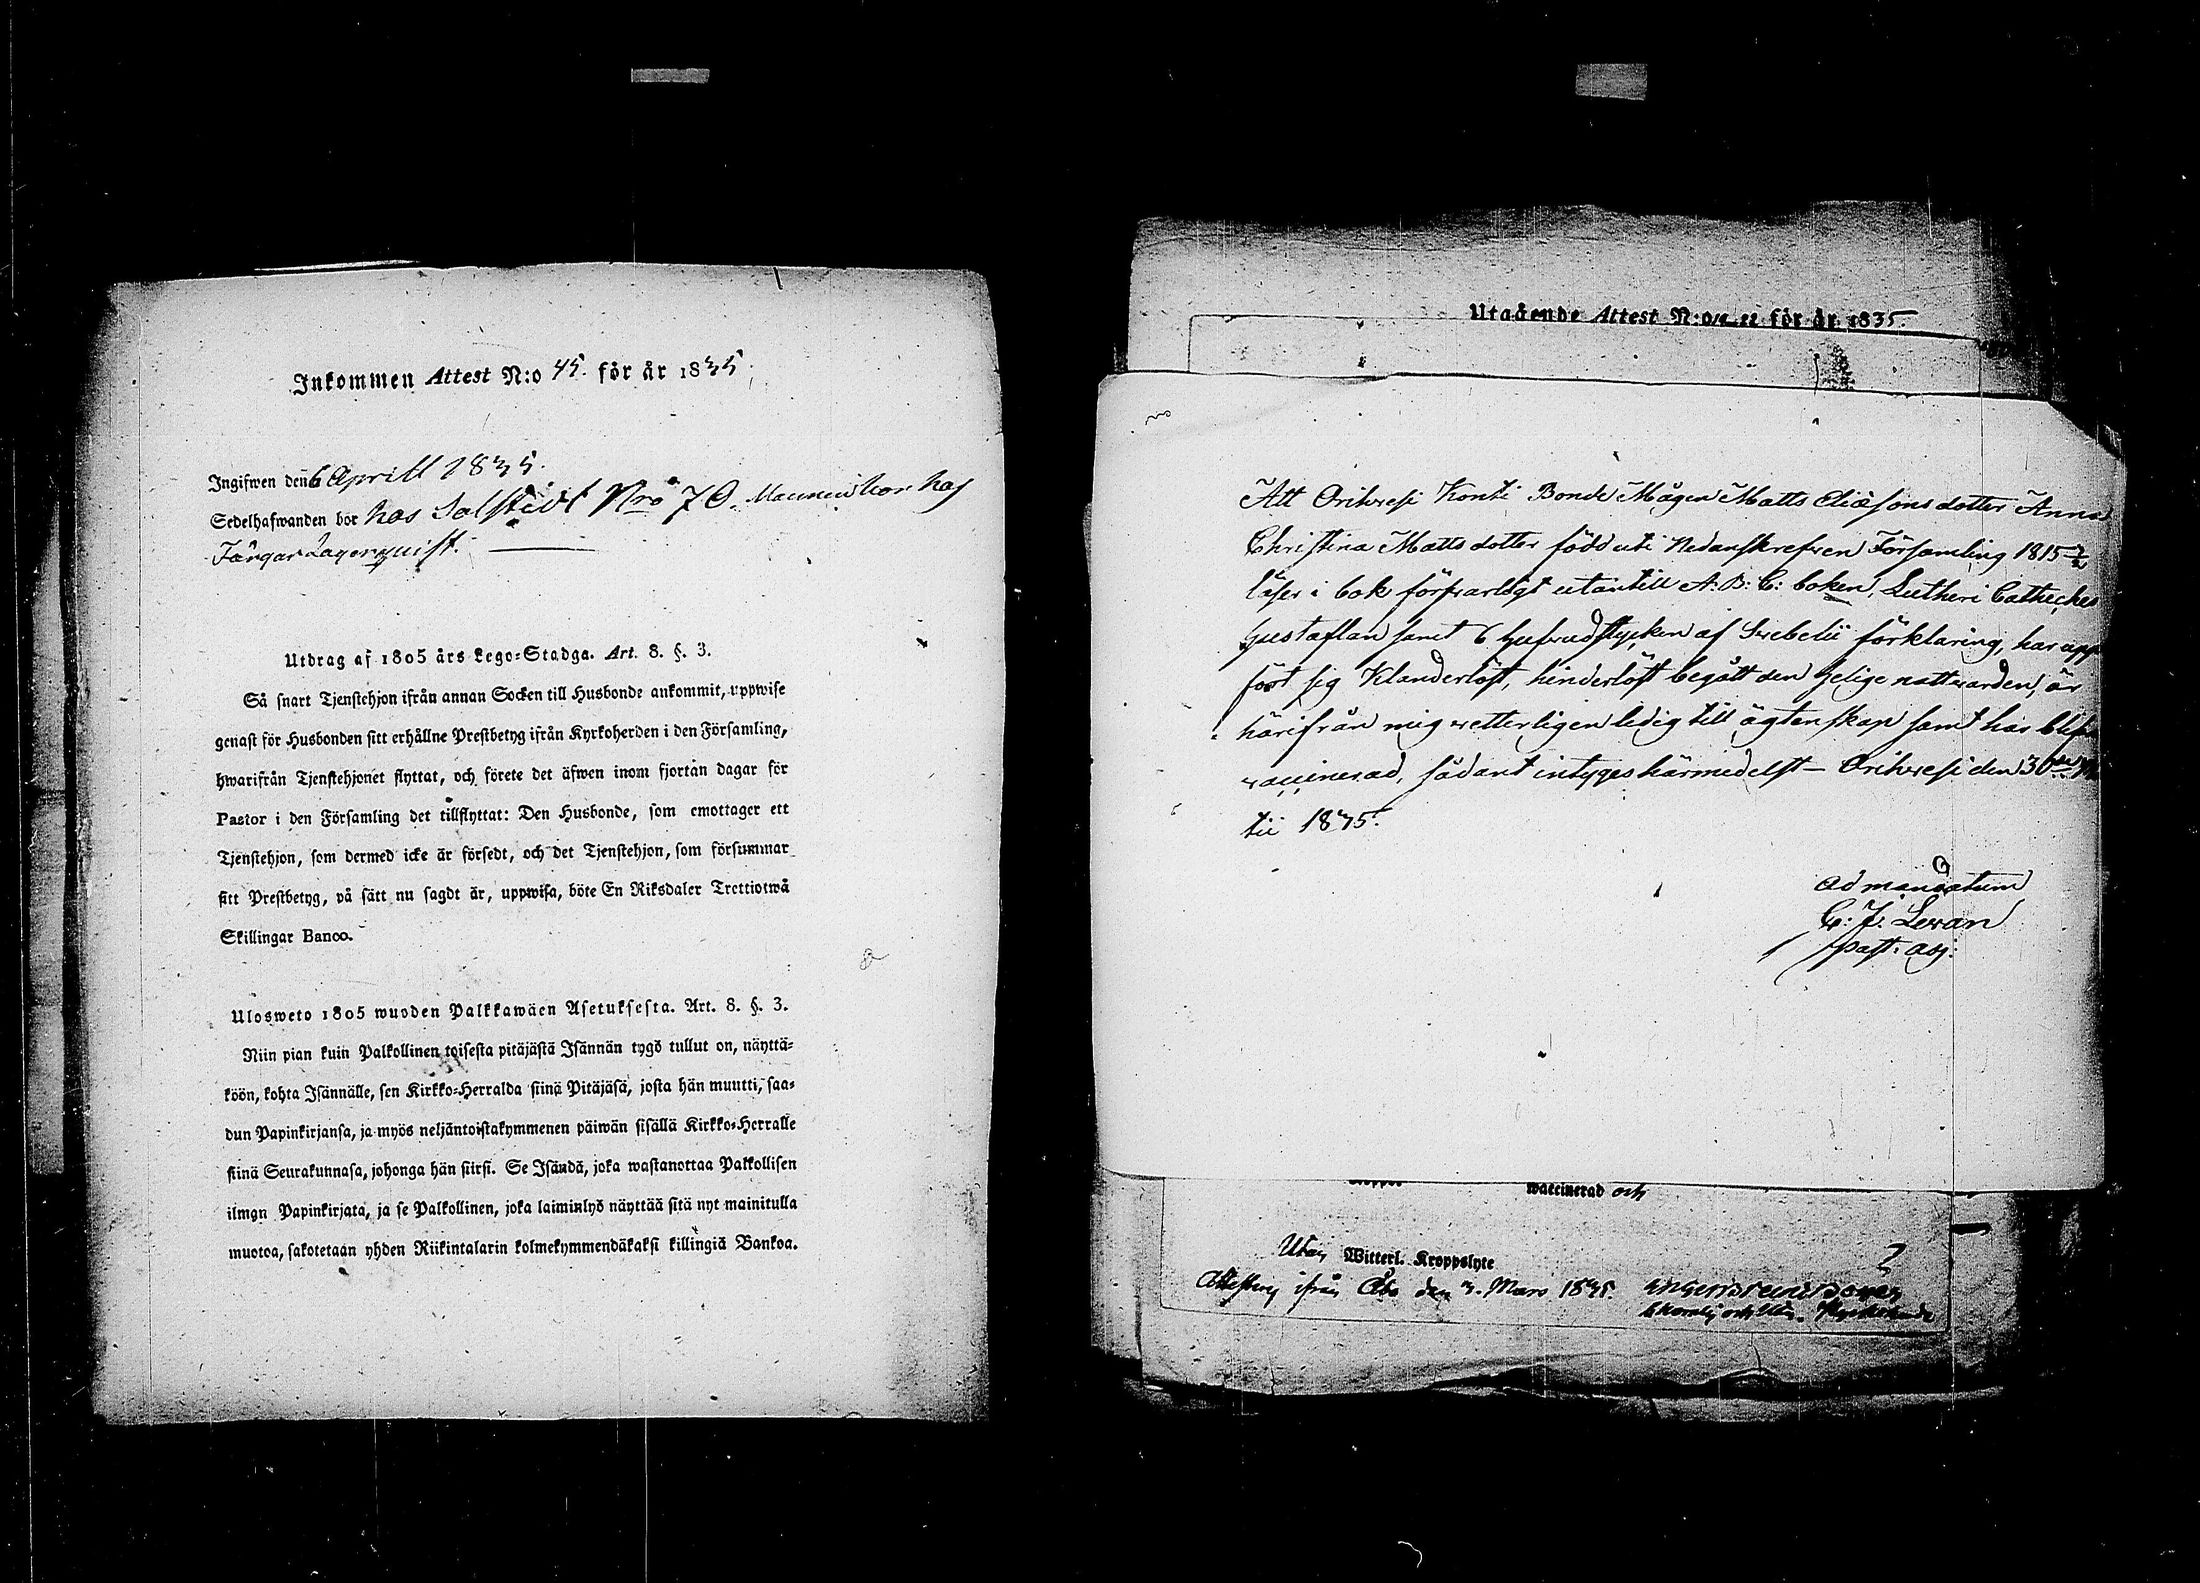 Inkommen Attest N:o 45. för år 1835.
Ingifwen den 6 Aprill 1835.
Sedelhafwanden bor hos Salstedt Nro 70. Mannen bor hos
Färgar Lagerquist.
Utdrag af 1805 års Lego-Stadga. Art. 8. §. 3.
Så snart Tjenstehjon ifrån annan Socken till Husbonde ankommit, uppwise
genast för Husbonden sitt erhållne Prestbetyg ifrån Kyrkoherden i den Församling,
hwarifrån Tjenstehjonet flyttat, och förete det äfwen inom fjortan dagar för
Pastor i den Församling det tillflyttat: Den Husbonde, som emottager ett
Tjenstehjon, som dermed icke är försedt, och det Tjenstehjon, som försummar
sitt Prestbetyg, på sätt nu sagdt är, uppwisa, böte En Riksdaler Trettiotwå
Skillingar Banco.
Ulosweto 1805 wuoden Palkkawäen Asetuksesta. Art. 8. §. 3.
Niin pian kuin Palkollinen toisesta pitäjästä Isännän tygö tullut on, näyttä-
köön, kohta Isännälle, sen Kirkko-Herralda siinä Pitäjäsä, josta hän muutti, saa-
dun Papinkirjansa, ja myös neljäntoistakymmenen päiwän sisällä Kirkko-Herralle
siinä Seurakunnasa, johonga hän siirsi. Se Isändä, joka wastanottaa Palkollisen
ilman Papinkirjata, ja se Palkollinen, joka laiminlyö näyttää sitä nyt mainitulla
muotoa, sakotetaan yhden Riikintalarin kolmekymmendäkaksi killingiä Bankoa.
Utgående Attest N:o för år 1835.
Att Orihvesi Konti Bonde Mågen Matts Eliæsons dotter Anna
Christina Mattsdotter född uti Nedanskrefven Församling 1815
läser i bok försvarligt utantill A. B. C. boken, Lutheri Cateches
Hustaflan samt 6 hufvudstycken af Svebelii förklaring, har upp
fört sig Klanderlöst, hinderlöst begått den Helige nattvarden, är
härifrån mig vetterligen ledig till ägtenskap samt har blifvit
vaccinerad, sådant intygas härmedelst – Orihvesi den 30de
tii 1835.
ad mandatum
C. J. Levan
Past. adj.
waccinerad och
Utan Witterl. Kroppslyte
Attesteras ifrån Åbo den 3. Mars 1835.